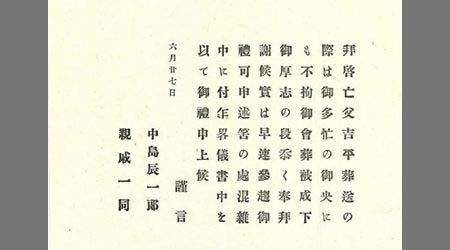 拜啓亡父吉平葬送の
際は御多忙の御央に
も不拘御會葬被成下
御厚志の段忝く奉拜
謝候實は早速參趨御
禮可申述筈の處混雜
中に付乍畧儀書中を
以て御禮申上候
謹言
六月廿七日
中島辰一郎
親戚一同